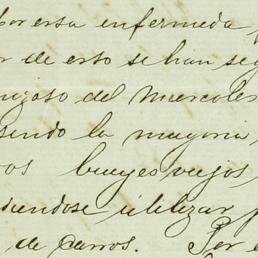 por esa enfermeda
de esto se han seg
del miercoles
siendo la mayoria
os bueyes viejos
diendose utilizar p
de carros. Por e